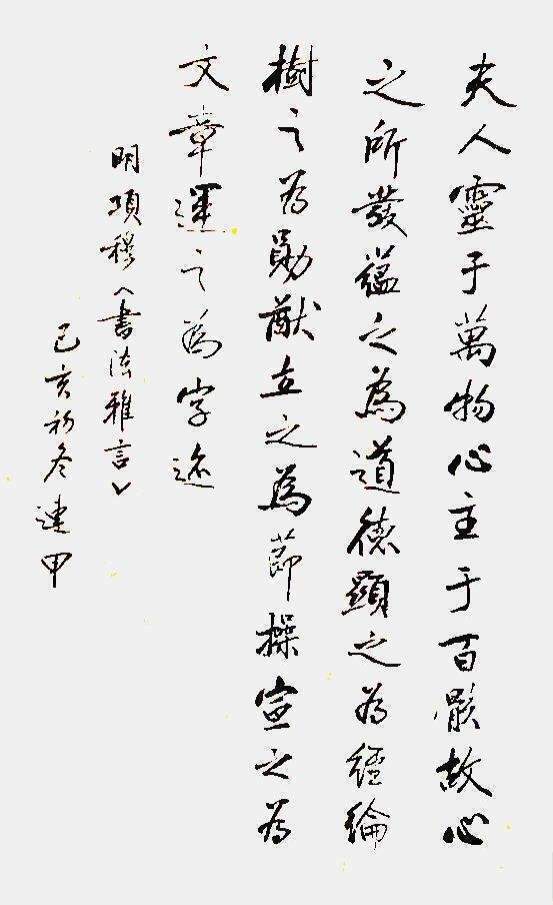 夫人靈于萬物心主于百骸故心
之所發蘊之為道德顯之為經綸
樹之為勛猷立之為節操宣之為
文章運之為字迹
明項穆《書法雅言》
己亥初冬連甲